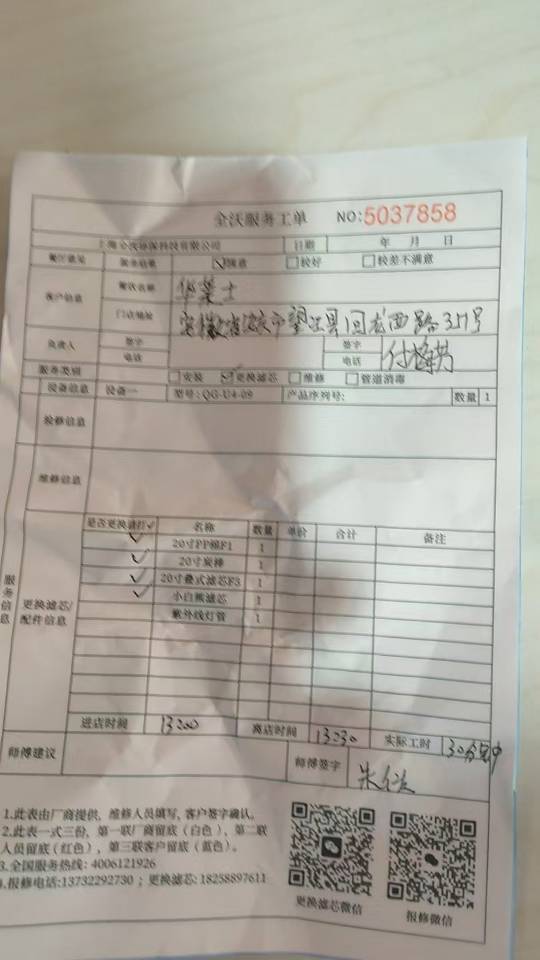 全沃服务工单 NO:5037858
上海全沃环保科技有限公司 日期 年 月 日
服务结果 ✓满意 □较好 □较差不满意
客户信息 餐饮名称 华莱士
门店地址 安徽省安庆市望江县回龙西路317号
负责人 签字 签字
电话 电话
服务类别 □安装 ✓更换滤芯 □维修 □管道消毒
设备信息 设备一 型号: QG-U4-09 产品序列号: 数量 1
检修信息
维修信息
服务信息
更换滤芯/
配件信息
是否更换请打✓ 名称 数量 单价 合计 备注
✓ 20寸PP棉F1 1
✓ 20寸炭棒 1
✓ 20寸叠式滤芯F3 1
✓ 小白熊滤芯 1
紫外线灯管 1
进店时间 13:00 离店时间 13:30 实际工时 30分钟
师傅建议 师傅签字
1.此表由厂商提供, 维修人员填写, 客户签字确认。
2.此表一式三份, 第一联厂商留底（白色）, 第二联
人员留底(红色), 第三联客户留底（蓝色）。
3.全国服务热线: 4006121926
4.报修电话:13732292730 ; 更换滤芯: 18258897611
更换滤芯微信 报修微信